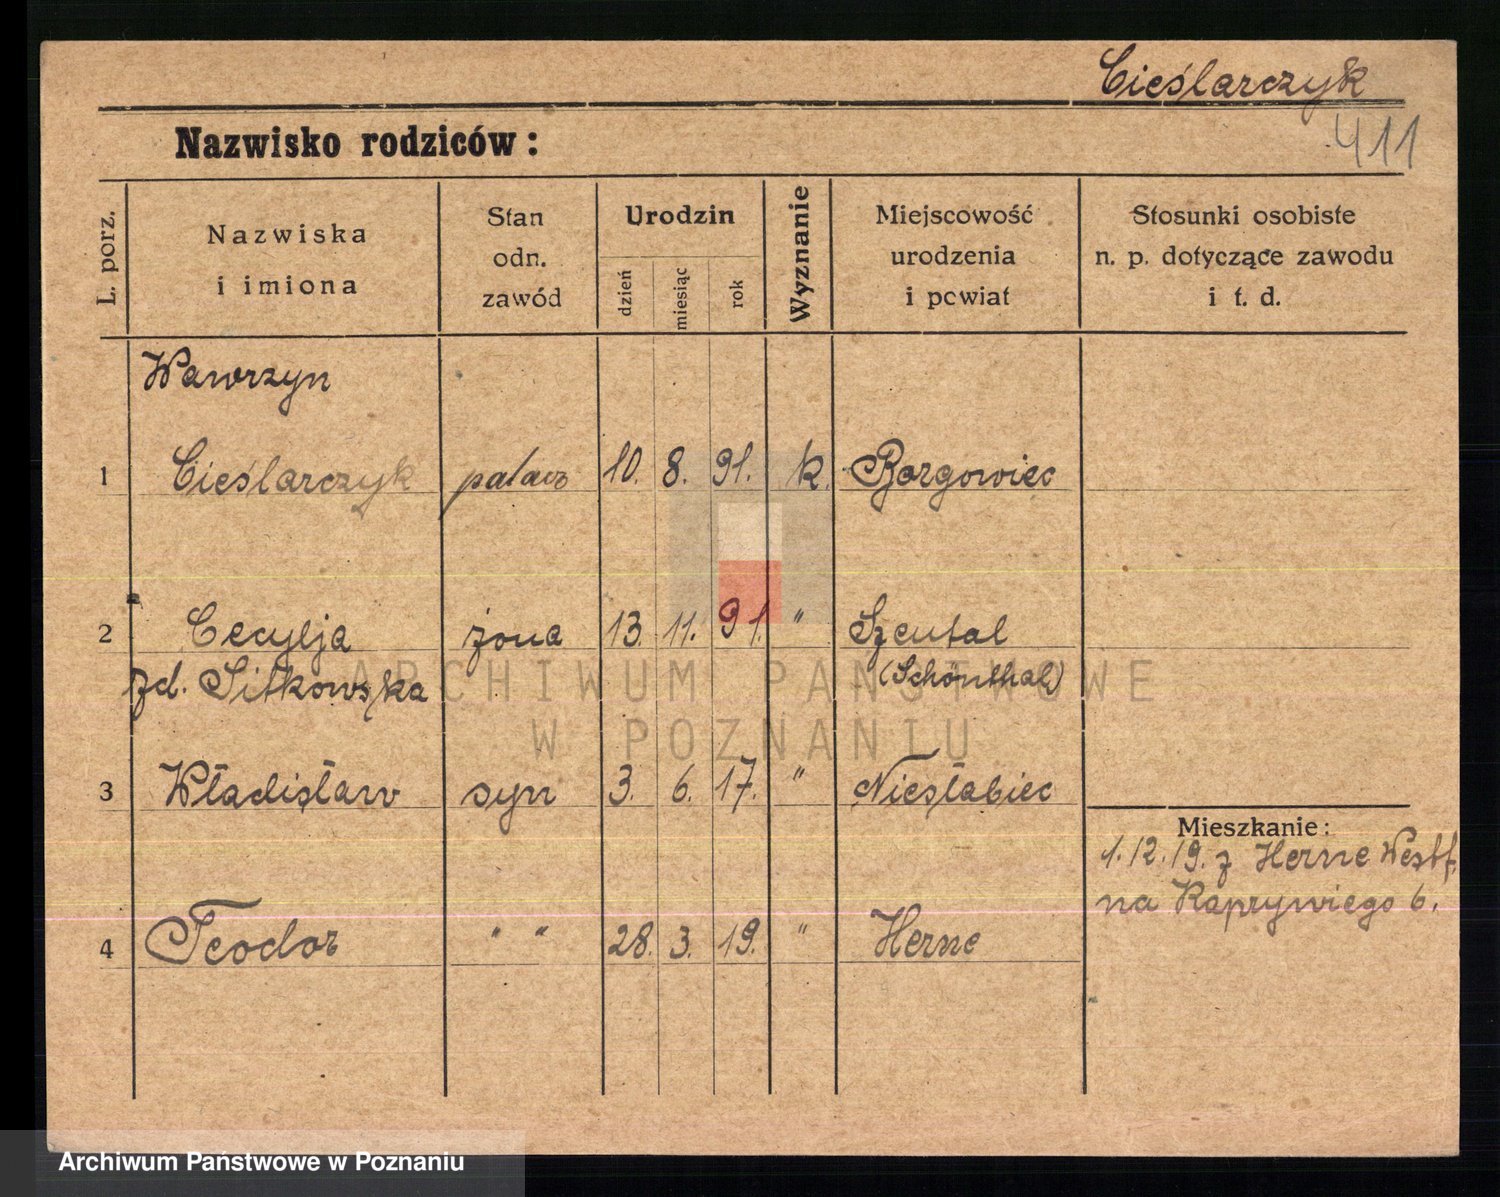 Cieślarczyk
Nazwisko rodziców:
411
L. porz.
Nazwiska
i imiona
Stan
odn.
zawód
Urodzin
dzień
miesiąc
rok
Wyznanie
Miejscowość
urodzenia
i powiat
Stosunki osobiste
n. p. dotyczące zawodu
i t. d.
Wawrzyn
1 Cieślarczyk palacz 10. 8. 91. k. Borgowiec
2 Cecylja żona 13. 11. 91. " Szental
zd. Sitkowska (Schönthal)
3 Władisław syn 3. 6. 17. " Niesłabiec
Mieszkanie:
1.12.19. z Herne Westf.
na Kaprywiego 6.
4 Teodor " " 28. 3. 19. " Herne
ARCHIWUM PAŃSTWOWE
W POZNANIU
Archiwum Państwowe w Poznaniu